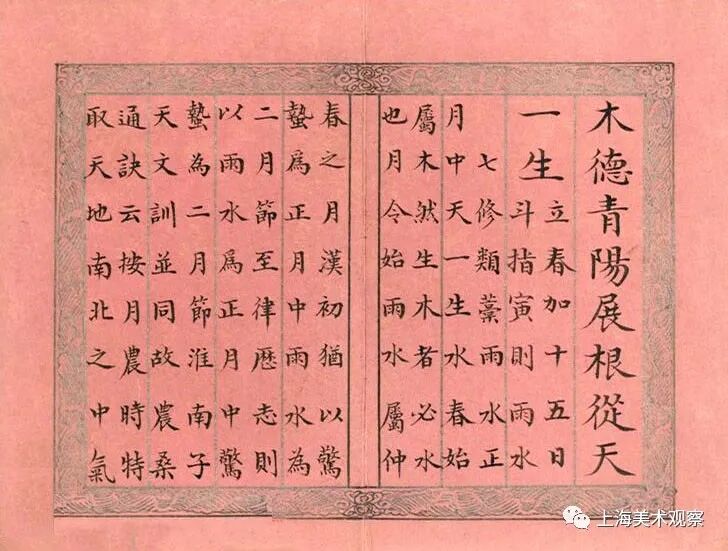 木德青陽展根從天
一生立春加十五日
斗指寅則雨水
七修類藁雨水正
月中天一生水春始
屬木然生木者必水
也月令始雨水屬仲
春之月漢初猶以驚
蟄爲正月中雨水為
二月節至律歴志則
以雨水爲正月中驚
蟄為二月節淮南子
天文訓並同故農桑
通訣云按月農時特
取天地南北之中氣
上海美术观察